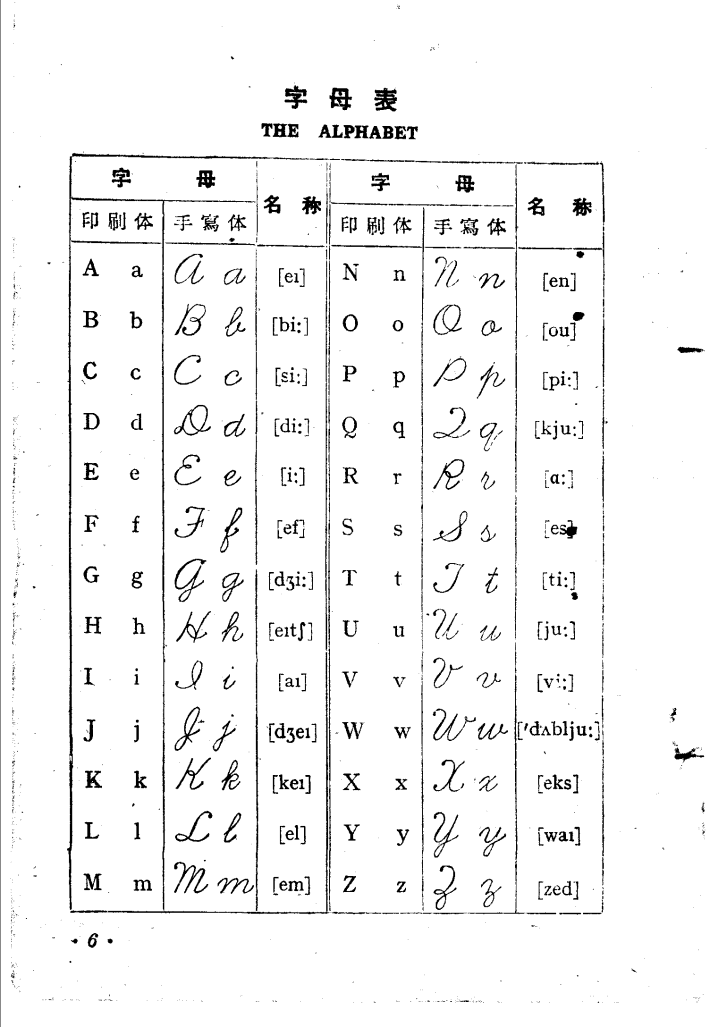 字 母 表
THE ALPHABET
字 母 名 称 字 母 名 称
印刷体 手寫体 印刷体 手寫体
A a A a [eɪ] N n N n [en]
B b B b [bi:] O o O o [ou]
C c C c [si:] P p P p [pi:]
D d D d [di:] Q q Q q [kju:]
E e E e [i:] R r R r [ɑ:]
F f F f [ef] S s S s [es]
G g G g [dʒi:] T t T t [ti:]
H h H h [eɪtʃ] U u U u [ju:]
I i I i [aɪ] V v V v [vi:]
J j J j [dʒeɪ] W w W w ['dʌblju:]
K k K k [keɪ] X x X x [eks]
L l L l [el] Y y Y y [waɪ]
M m M m [em] Z z Z z [zed]
· 6 ·